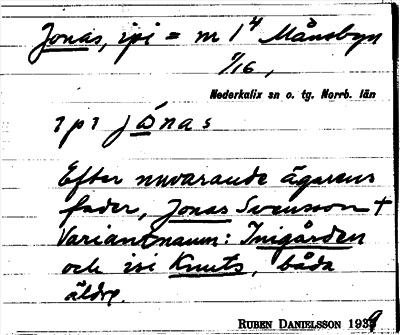 Jonas, ipi = m 1⁴ Månsbyn
1/16,
Nederkalix sn o. tg. Norrb. län
ɿpɿ jónas
Efter nuvarande ägarens
fader, Jonas Svensson +
Variantnamn: Inigården
och isi Knuts, båda
äldre.
RUBEN DANIELSSON 1939